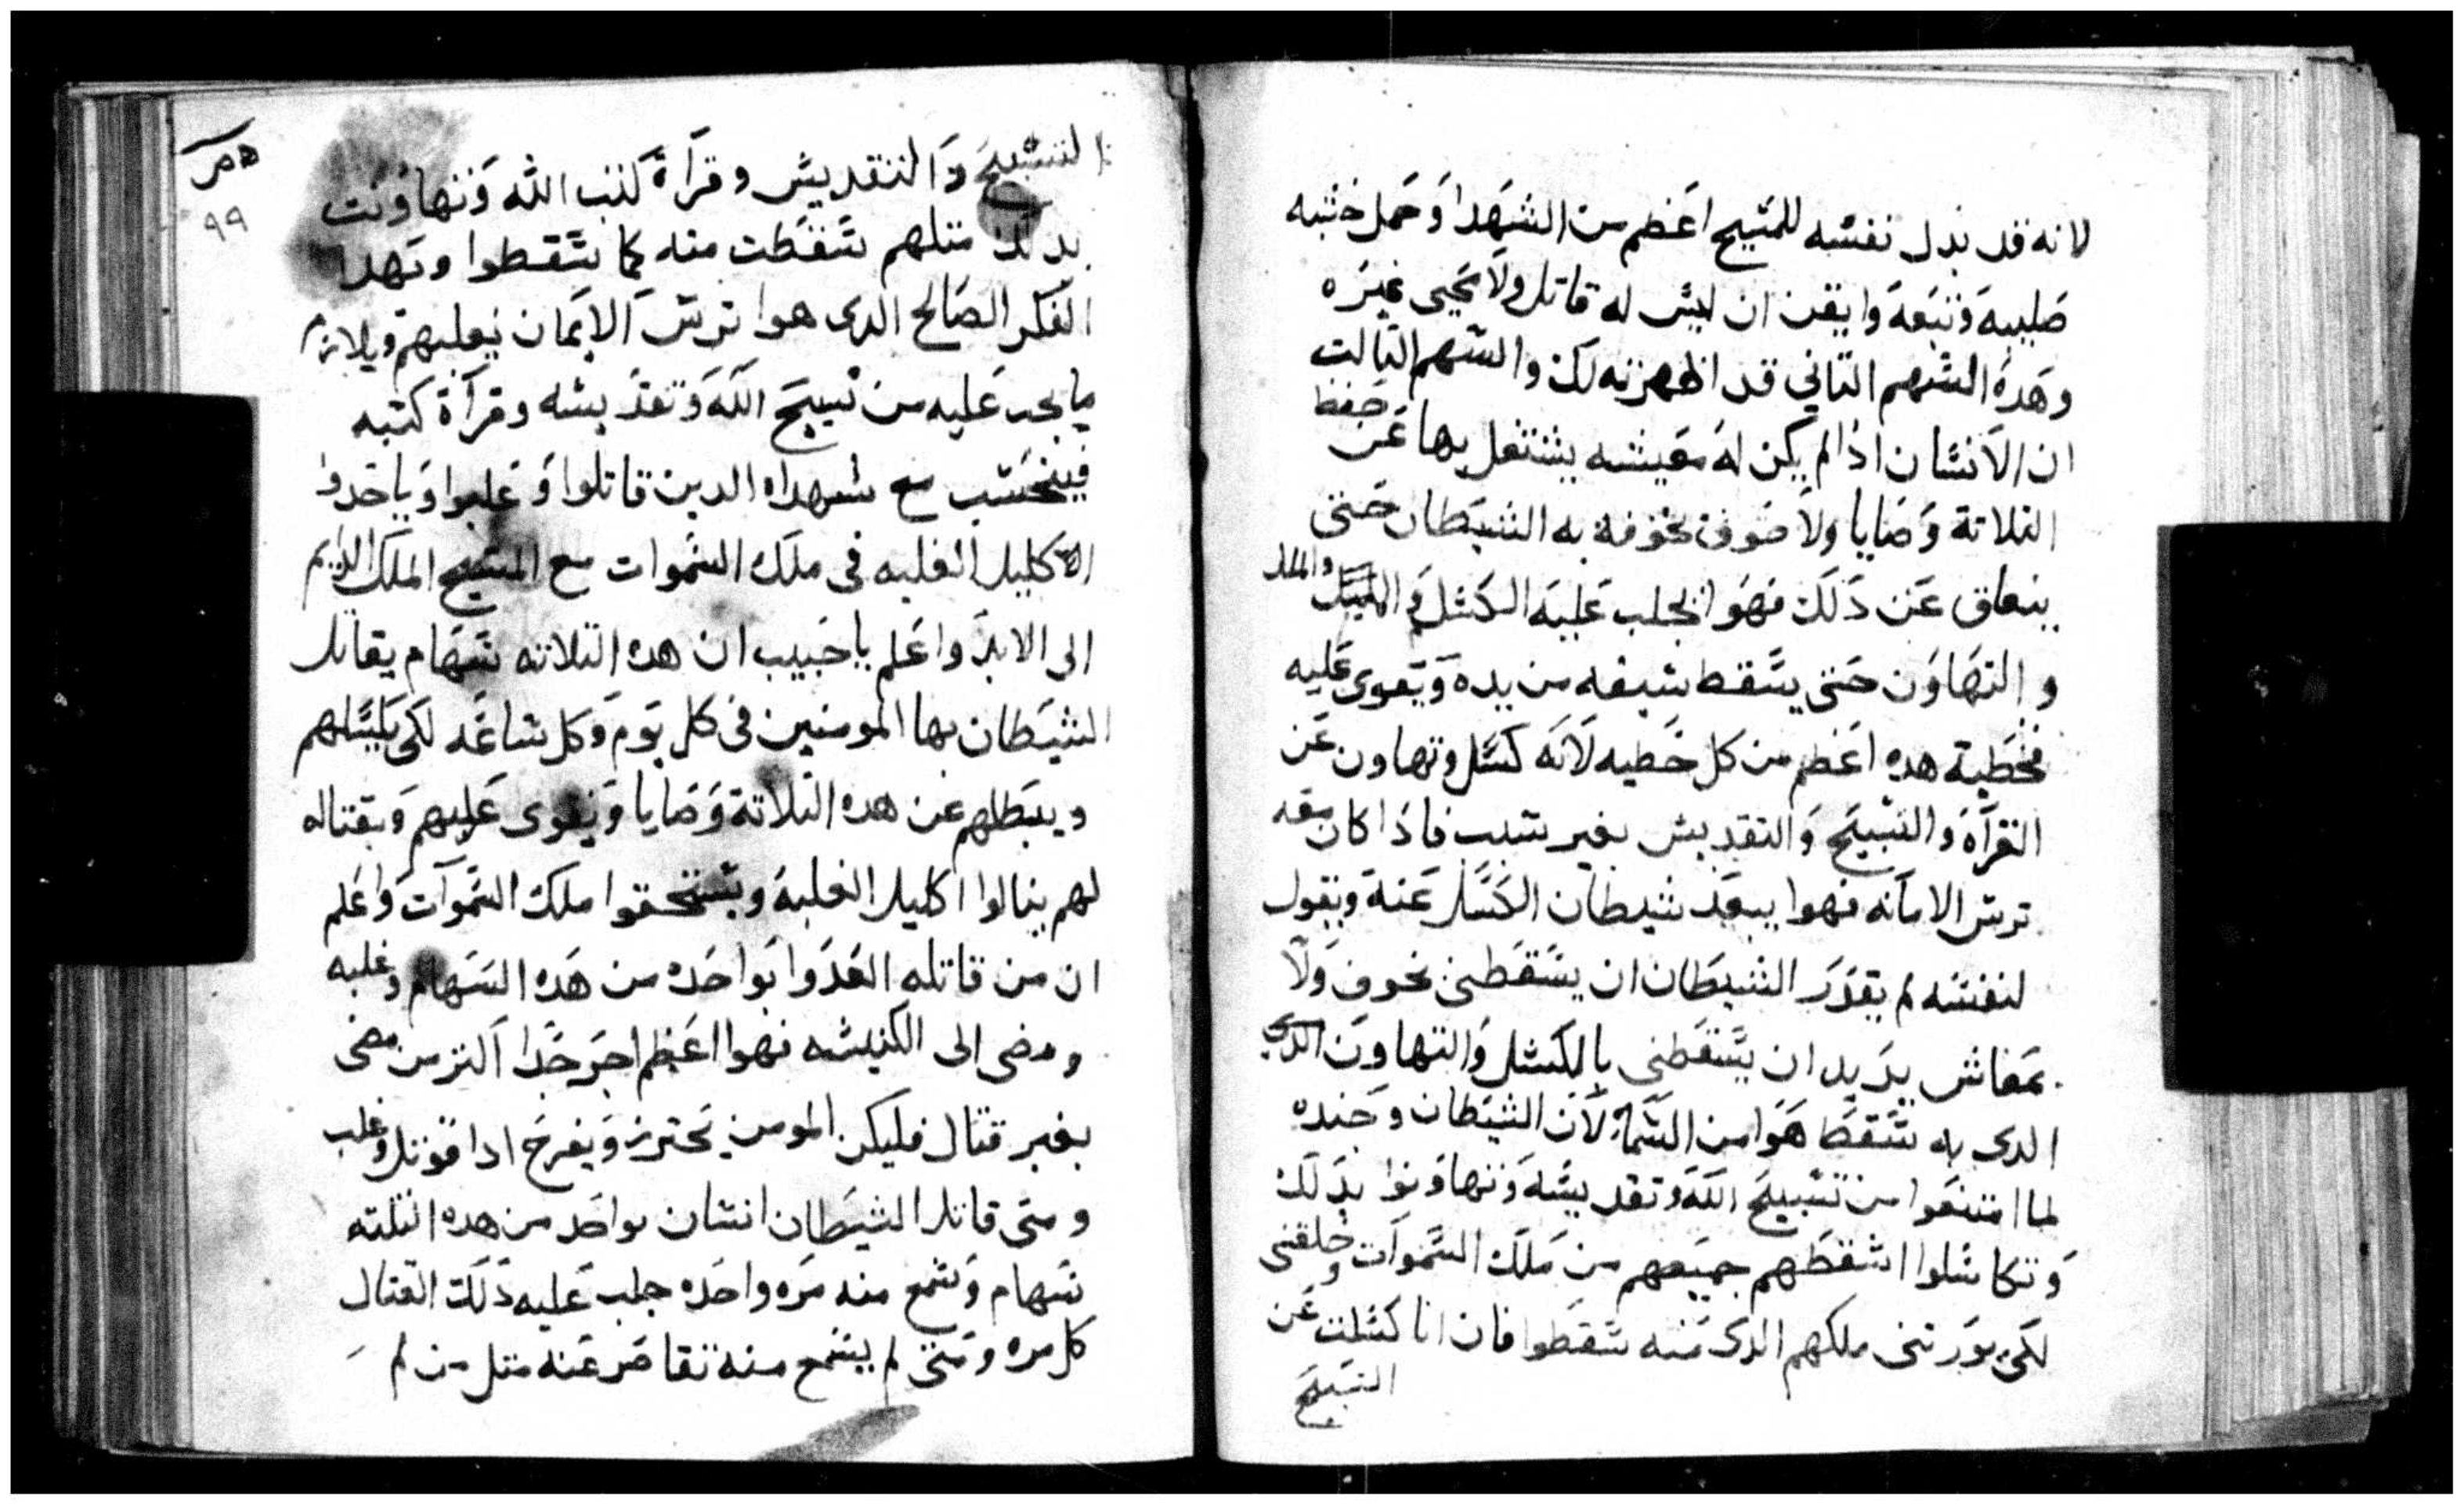 لانه قد بدل نفسه للمسيح اعظم من الشهدا وحمل خشبه
صليبه وتبعه وايقن ان ليس له قاتل ولا محيى غيره
وهده السهم التاني قد اظهرته لك والسهم التالت
ان الانسان ادا لم يكن له معيشه يشتغل بها عن حفظ
التلاتة وصايا ولا خوف يخوفه به الشيطان حتى
ينعاق عن دلك فهوا يجلب عليه الكسل والملل
والتهاون حتى يسقط سيفه من يده ويقوى عليه
فخطية هده اعظم من كل خطيه لانه كسل وتهاون عن
القرآة والتسبيح والتقديس بغير سبب فادا كان معه
ترس الامانه فهوا يبعد شيطان الكسل عنه ويقول
لنفسه لم يقدر الشيطان ان يسقطني بخوف ولا
بمعاش يريد ان يسقطني بالكسل والتهاون الدى
الدى به سقط هوا من السما لان الشيطان وجنده
لما امتنعوا من تسبيح الله وتقديسه وتهاونوا بدلك
وتكاسلوا اسقطهم جميعهم من ملك السموات وخلقني
لكى يورتني ملكهم الدى منه سقطوا فان انا كسلت عن
التسبيح
التسبيح والتقديس وقرآة كتب الله وتهاونت
بدلك متلهم سقطت منه كما سقطوا وبهدا
الفكر الصالح الدى هوا ترس الايمان يغلبهم ويلازم
ما يجب عليه من تسبيح الله وتقديسه وقرآة كتبه
فينحسب مع شهداه الدين قاتلوا وغلبوا وياخدوا
الاكليل الغلبه فى ملك السموات مع المسيح الملك الدايم
الى الابد واعلم يا حبيب ان هده التلاته سهام يقاتل
الشيطان بها المومنين فى كل يوم وكل ساعه لكى يكسلهم
ويبطلهم عن هده التلاتة وصايا ويقوى عليهم وبقتاله
لهم ينالوا اكليل الغلبة ويستحقوا ملك السموات واعلم
ان من قاتله العدوا بواحده من هده السهام وغلبه
ومضى الى الكنيسه فهوا اعظم اجر جدا اكتر من مضى
بغير قتال فليكن المومن يحترز ويفرح ادا قوتل وغلب
ومتى قاتل الشيطان انسان بواحد من هده التلته
سهام وسمع منه مره واحده جلب عليه دلك القتال
كل مره ومتى لم يسمع منه تقاصر عنه متل من لم
٩٩